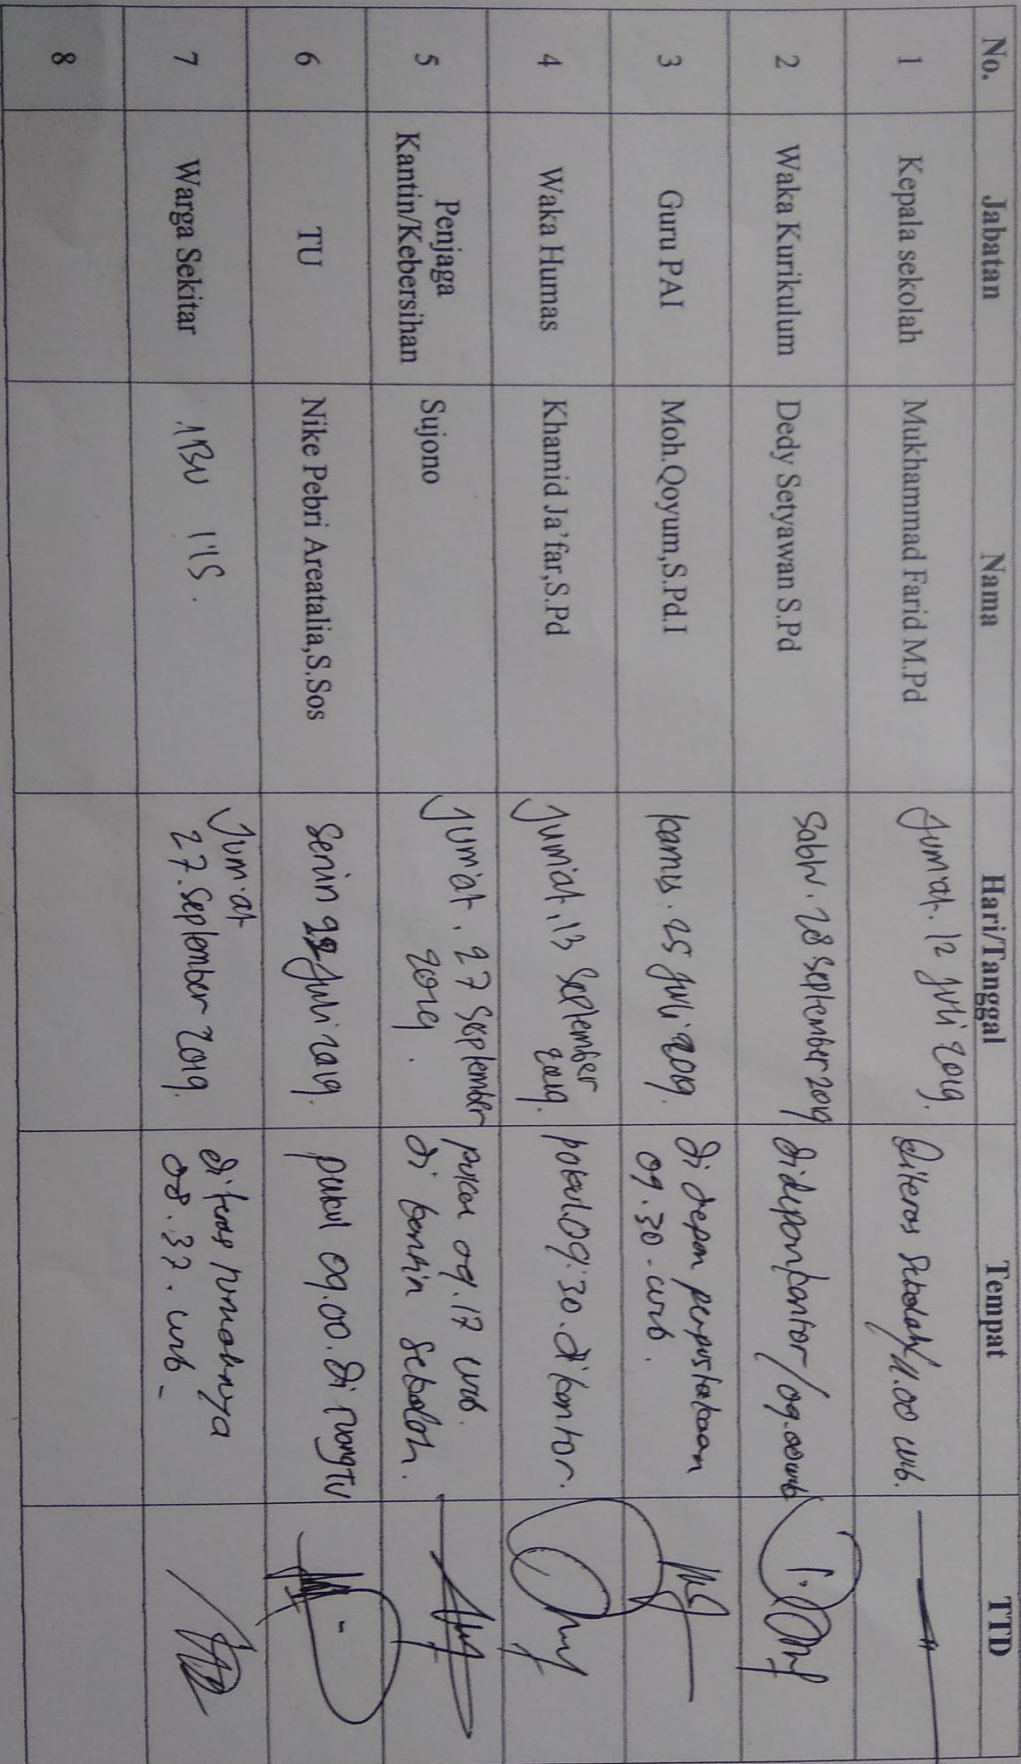 No. Jabatan Nama Hari/Tanggal Tempat TTD
1 Kepala sekolah Mukhammad Farid M.Pd Jum'at. 12 Juli 2019. Diteras Sekolah/11.00 wib.
2 Waka Kurikulum Dedy Setyawan S.Pd Sabtu. 28 September 2019 didepan kantor/09.00 wib
3 Guru PAI Moh.Qoyum,S.Pd.I kamis. 25 Juli 2019. di depan perpustakaan
09.30.wib.
4 Waka Humas Khamid Ja'far,S.Pd Jum'at, 13 September
2019. pukul.09:30.dikantor.
5 Penjaga
Kantin/Kebersihan Sujono Jum'at, 27 September
2019. pukul 09.17 wib.
di kantin sekolah.
6 TU Nike Pebri Areatalia,S.Sos Senin 22 Juli 2019. pukul 09.00. di ruang TU
7 Warga Sekitar Jum'at
27.September 2019. diteras rumahnya
08.37.wib.
8